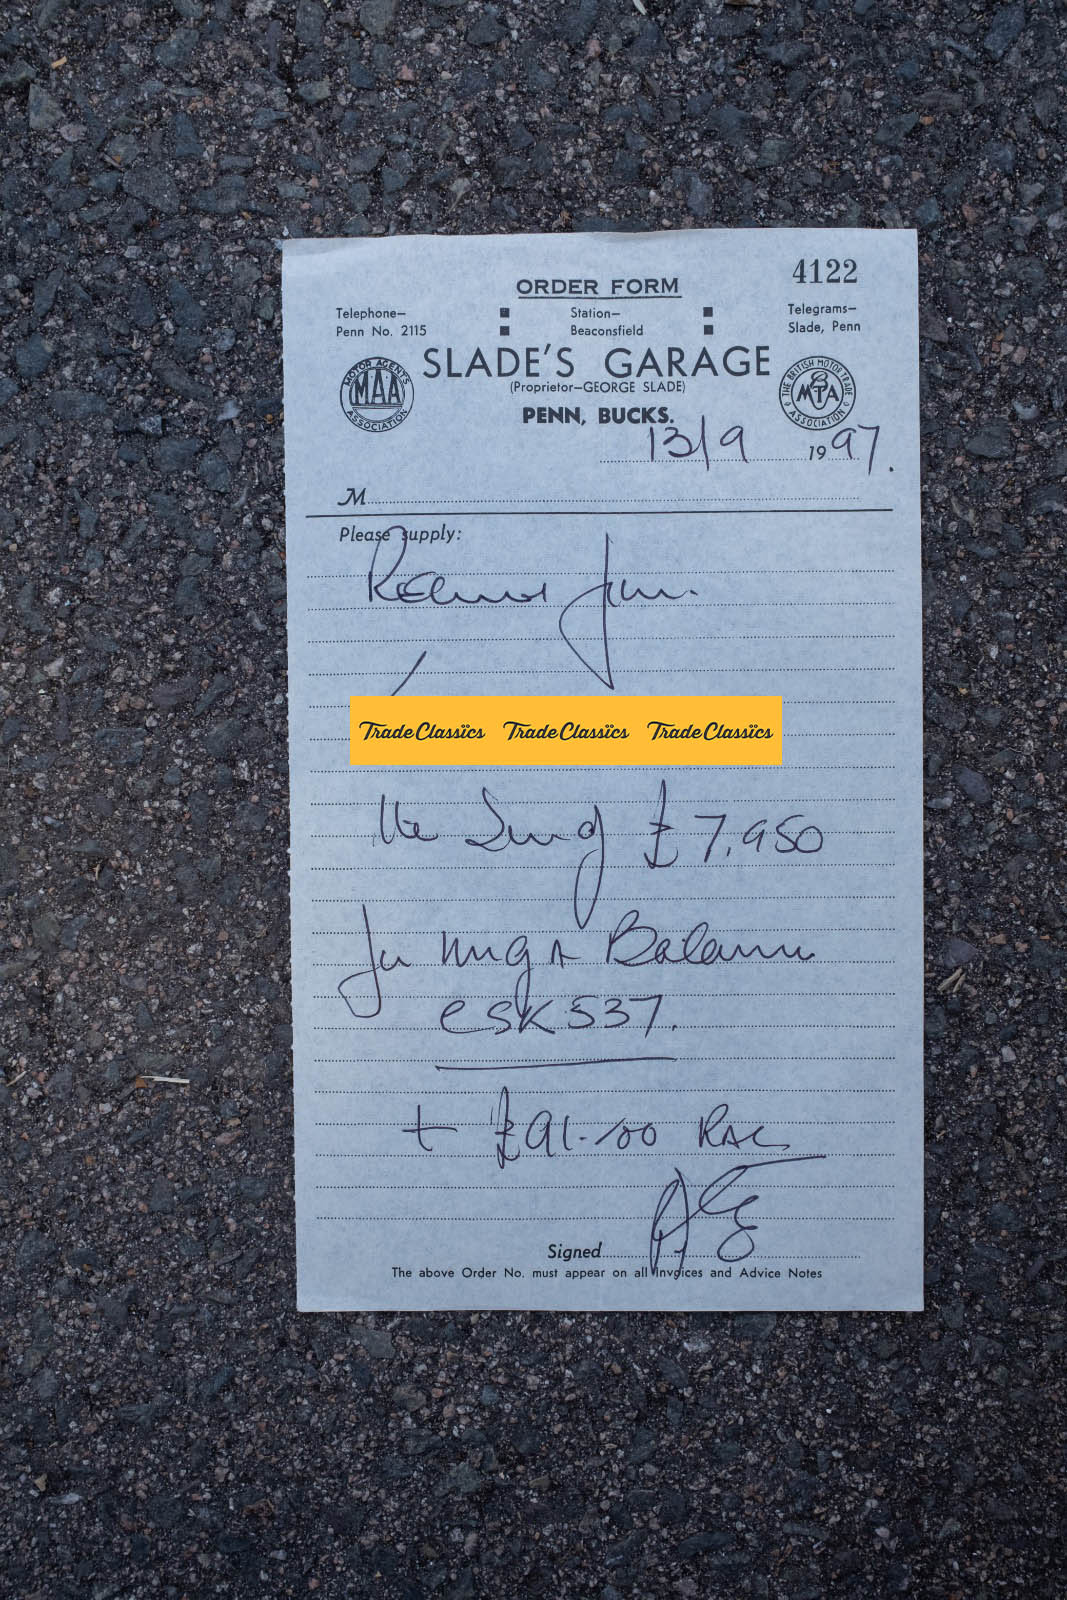 4122
ORDER FORM
Telephone— Station— Telegrams—
Penn No. 2115 Beaconsfield Slade, Penn
SLADE'S GARAGE
(Proprietor—GEORGE SLADE)
MOTOR AGENTS ASSOCIATION MAA
THE BRITISH MOTOR TRADE ASSOCIATION BMTA
PENN, BUCKS.
13/9 1997.
M
Please supply:
Received from.
TradeClassics TradeClassics TradeClassics
the Sum of £7,950
for Balance
ESK537.
+ £91.00 RAC
Signed
The above Order No. must appear on all Invoices and Advice Notes